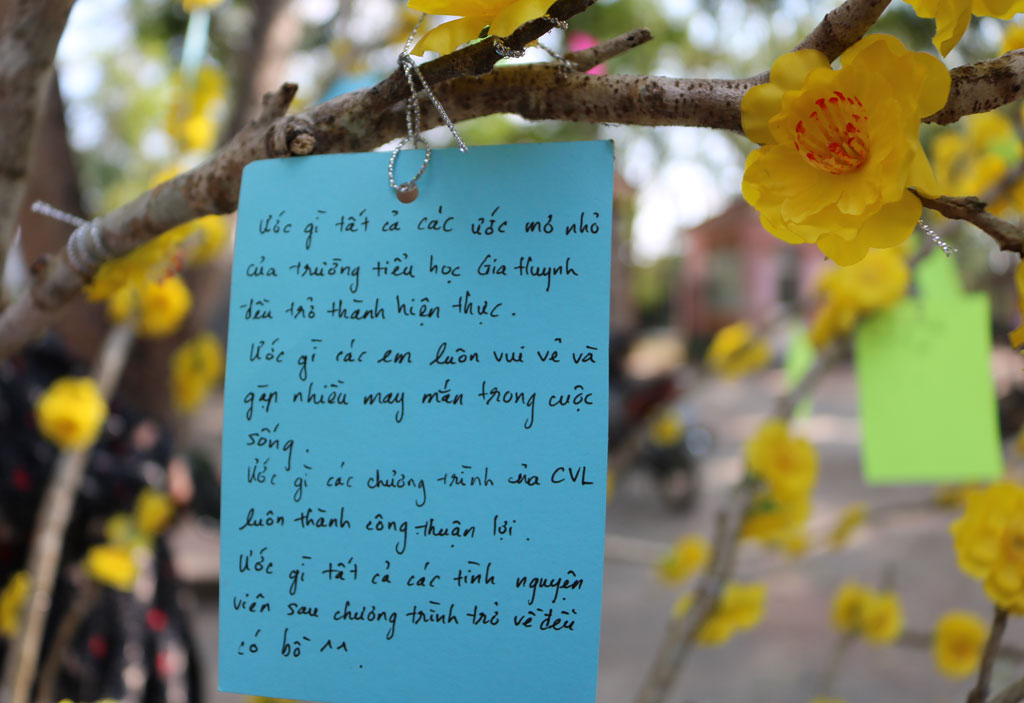 Ước gì tất cả các ước mơ nhỏ
của trường tiểu học Gia Huynh
đều trở thành hiện thực.
Ước gì các em luôn vui vẻ và
gặp nhiều may mắn trong cuộc
sống.
Ước gì các chương trình của CVL
luôn thành công thuận lợi.
Ước gì tất cả các tình nguyện
viên sau chương trình trở về đều
có bồ ^^.